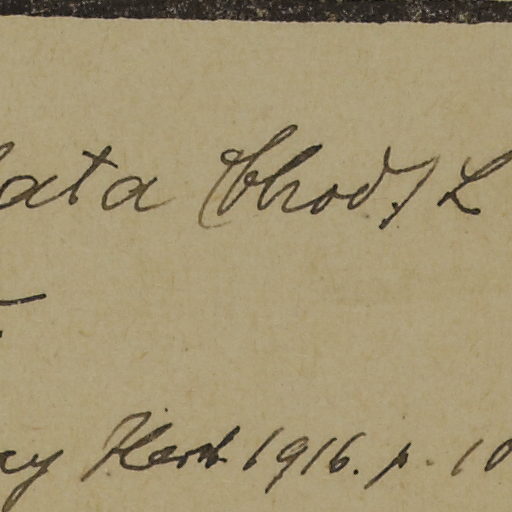 ata (Chod.) L
ay Herb. 1916. p. 10